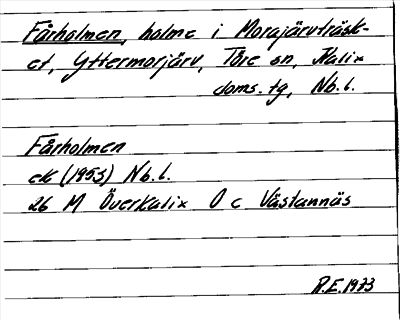 Fårholmen, holme i Morajärvträsk-
et, Yttermorjärv, Töre sn, Kalix
doms. tg, Nb. l.
Fårholmen
ek (1953) Nb. l.
26 M Överkalix O c Västannäs
R.E. 1973